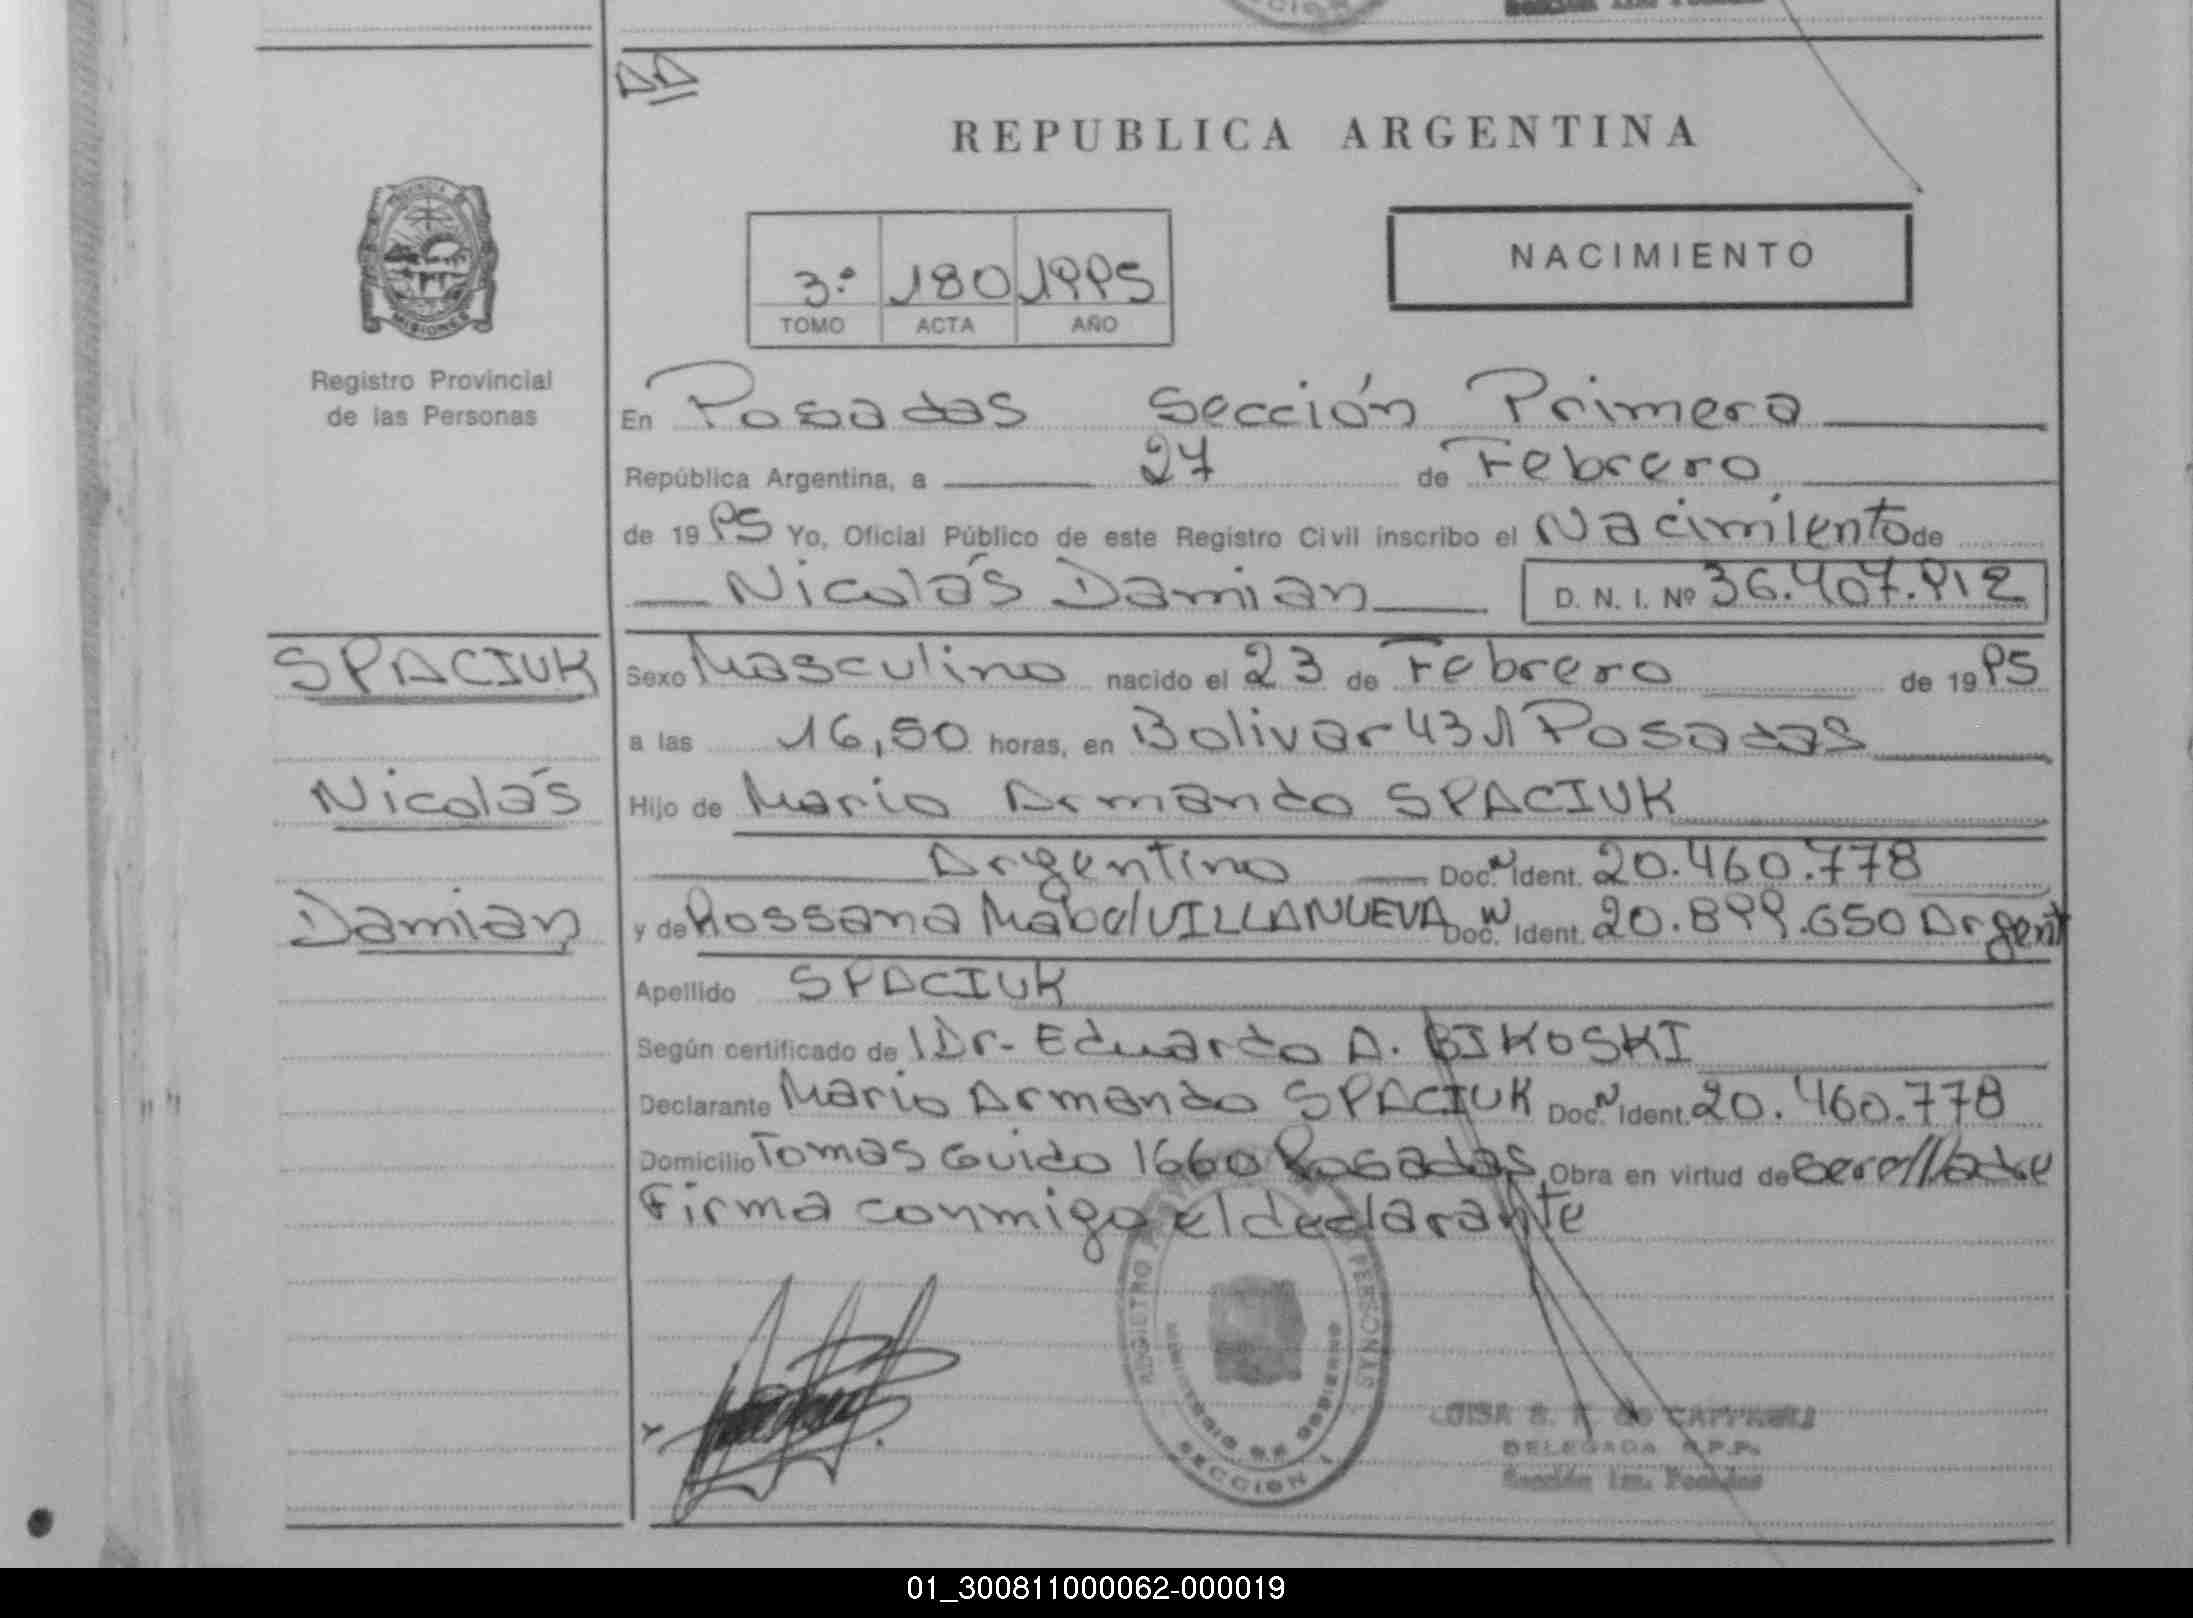 DD
REPUBLICA ARGENTINA
NACIMIENTO
3º 180 1995
TOMO ACTA AÑO
PROVINCIA
MISIONES
Registro Provincial
de las Personas
En Posadas Sección Primera
República Argentina, a 27 de Febrero
de 1995 Yo, Oficial Público de este Registro Civil inscribo el Nacimiento de
Nicolás Damian D. N. I. Nº 36.407.912
SPACIUK
Nicolás
Damian
Sexo Masculino nacido el 23 de Febrero de 1995
a las 16,50 horas, en Bolivar 431 Posadas
Hijo de Mario Armando SPACIUK
Argentino Doc. N Ident. 20.460.778
y de Rossana Mabel VILLANUEVA Doc. N Ident. 20.899.650 Argent
Apellido SPACIUK
Según certificado de l Dr. Eduardo A. BIKOSKI
Declarante Mario Armando SPACIUK Doc. N Ident. 20.460.778
Domicilio Tomas Guido 1660 Posadas Obra en virtud de ser el Padre
Firma conmigo el declarante
REGISTRO PERSONAS
MINISTERIO DE GOBIERNO
SECCION 1
LUISA de
DELEGADA R.P.P.
Sección 1ra. Posadas
01_300811000062-000019